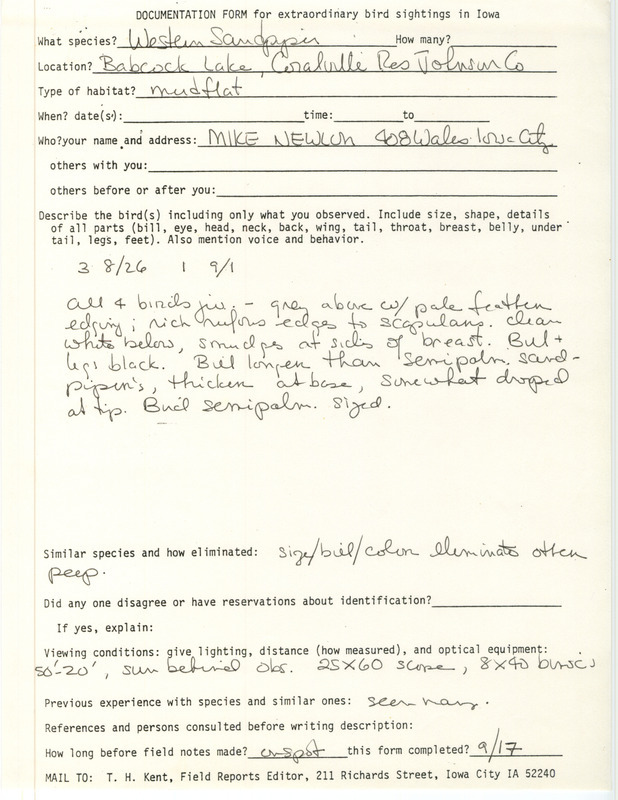 DOCUMENTATION FORM for extraordinary bird sightings in Iowa
What species? Western Sandpiper How many?
Location? Babcock Lake, Coralville Res Johnson Co
Type of habitat? mudflat
When? date(s): time: to
Who?your name and address: MIKE NEWLON 408 Wales Iowa City
others with you:
others before or after you:
Describe the bird(s) including only what you observed. Include size, shape, details
of all parts (bill, eye, head, neck, back, wing, tail, throat, breast, belly, under
tail, legs, feet). Also mention voice and behavior.
3 8/26 1 9/1
all 4 birds juv. - grey above w/ pale feather
edging; rich rufous edges to scapulars. clean
white below, smudges at sides of breast. Bill +
legs black. Bill longer than semipalm. sand-
piper's, thicker at base, somewhat drooped
at tip. Bird semipalm. sized.
Similar species and how eliminated: size/bill/color eliminates other
peep.
Did any one disagree or have reservations about identification?
If yes, explain:
Viewing conditions: give lighting, distance (how measured), and optical equipment:
50'-20', sun behind obs. 25X60 scope, 8X40 binocs
Previous experience with species and similar ones: seen many.
References and persons consulted before writing description:
How long before field notes made? on spot this form completed? 9/17
MAIL TO: T. H. Kent, Field Reports Editor, 211 Richards Street, Iowa City IA 52240